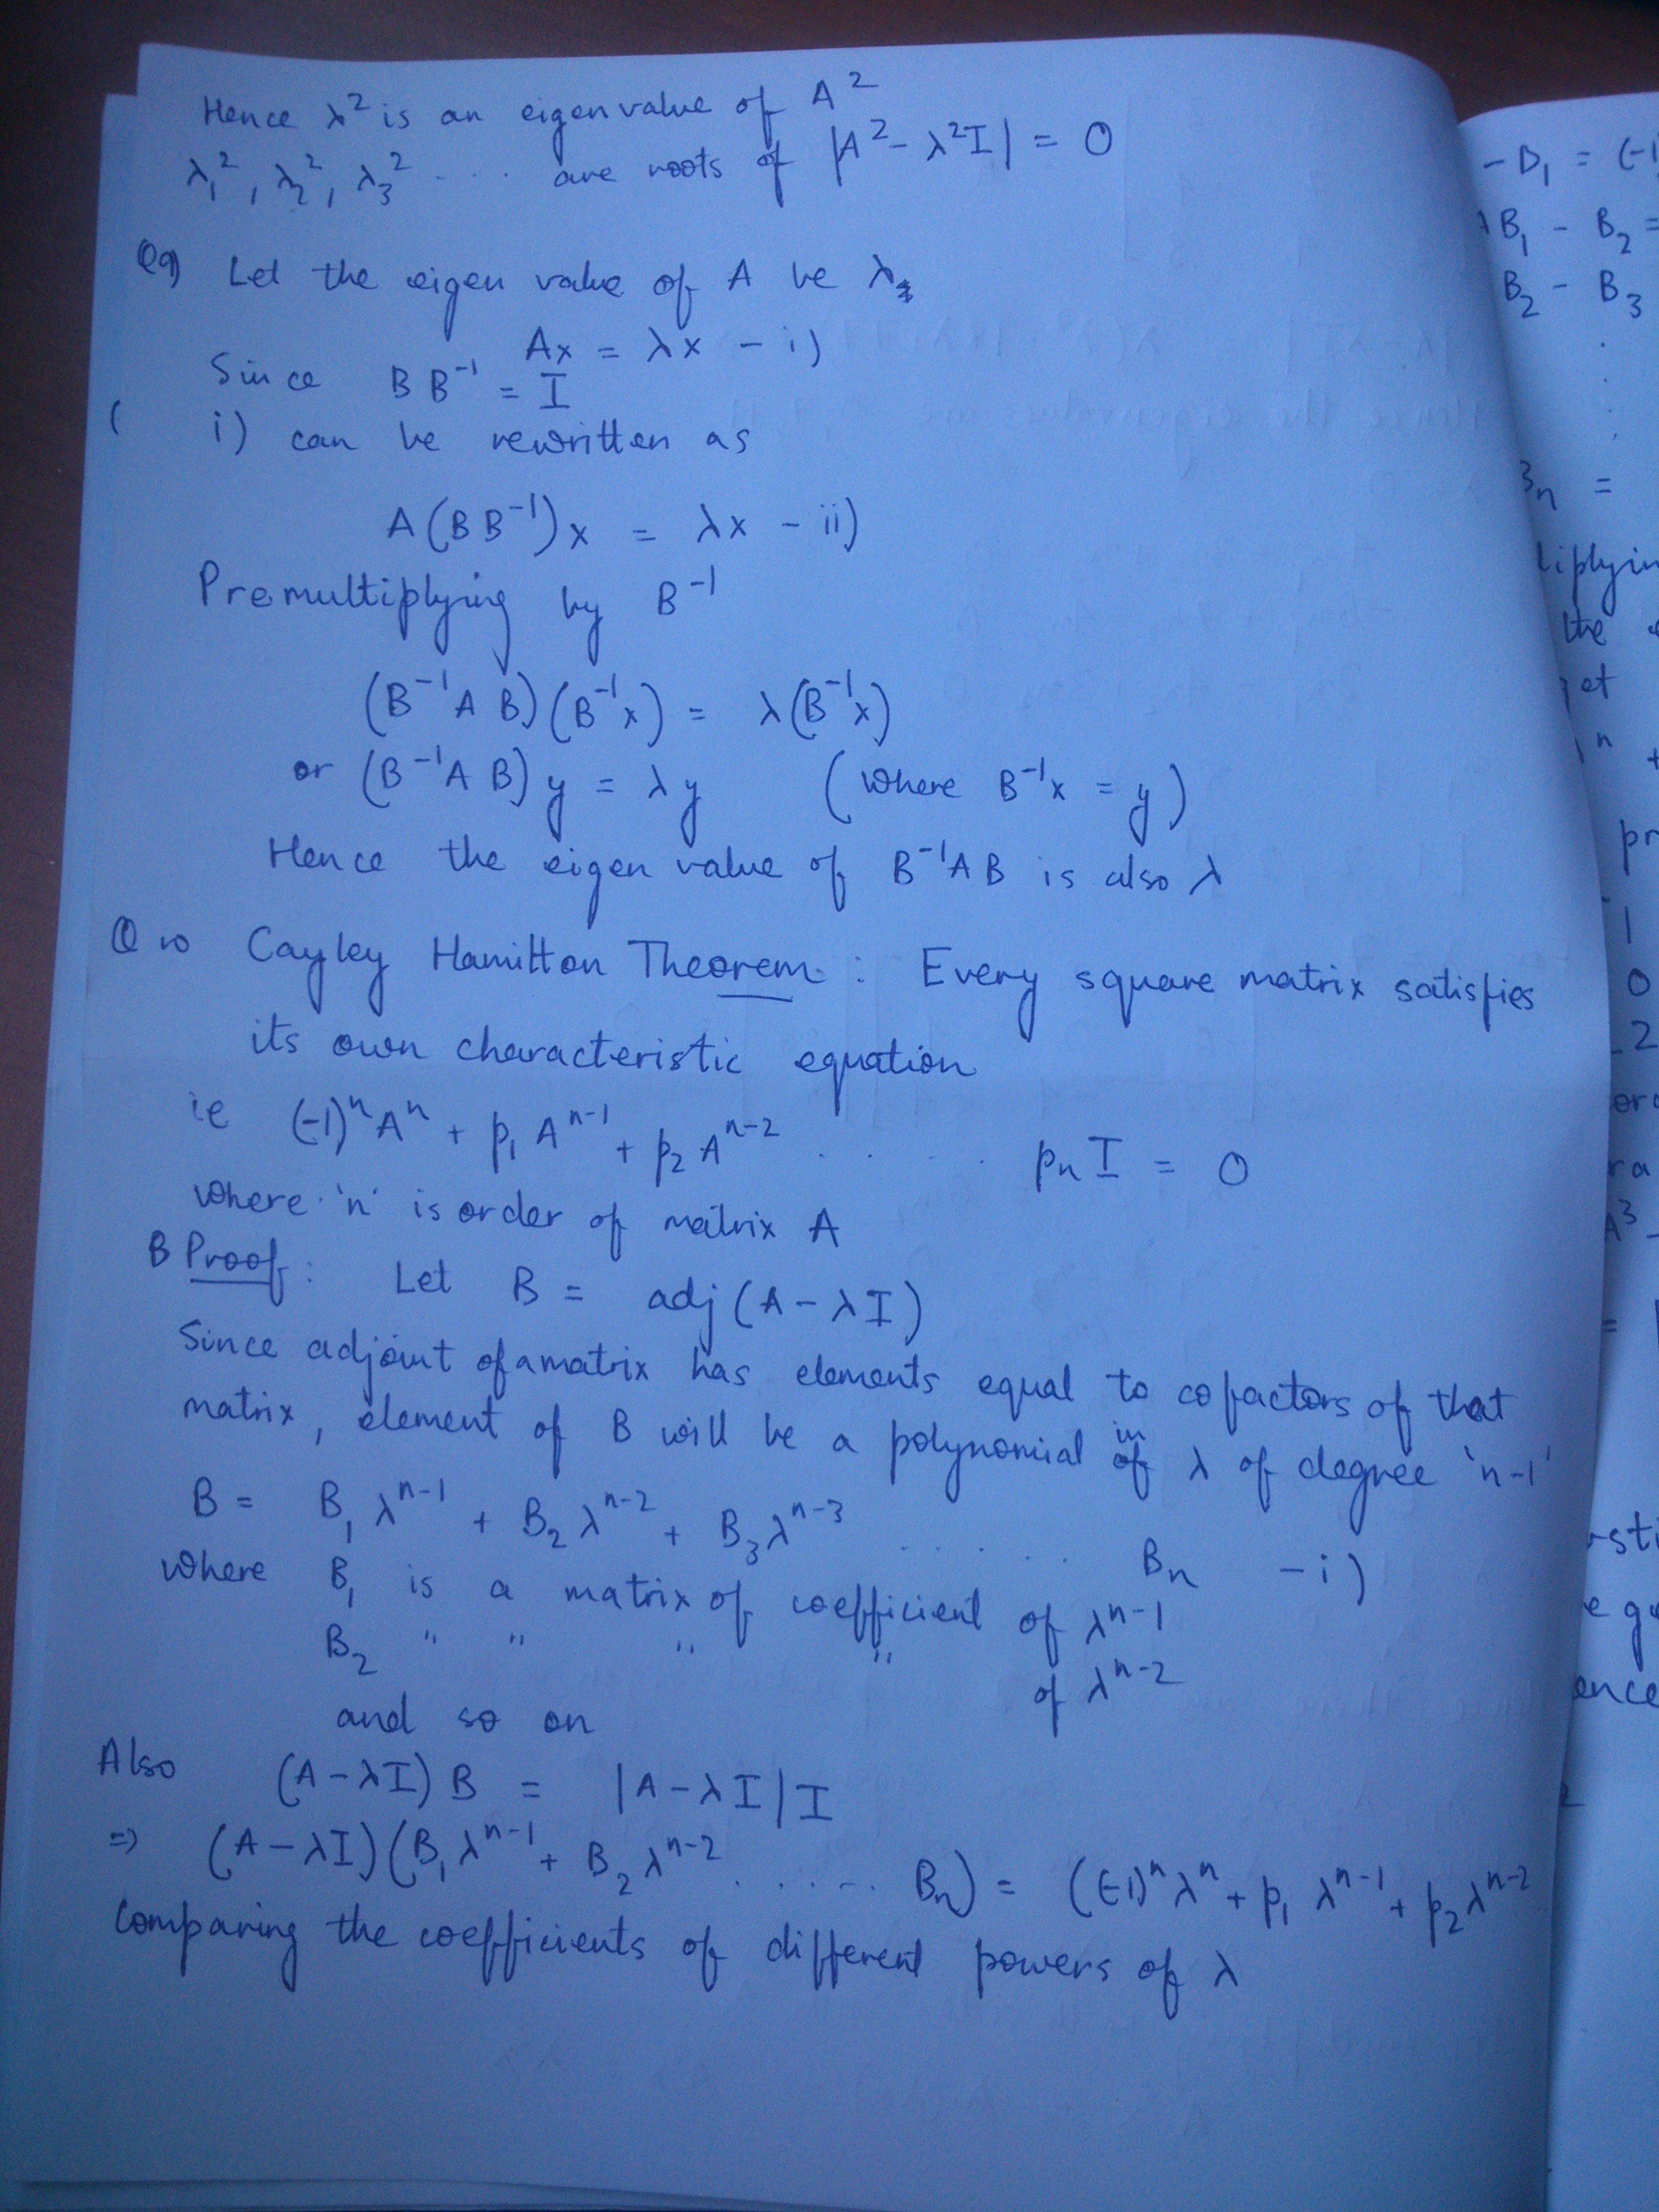 Hence λ² is an eigen value of A²
λ₁², λ₂², λ₃² .... are roots of |A² - λ²I| = 0
Q9) Let the eigen value of A be λ
Ax = λx - i)
Since BB⁻¹ = I
( i) can be rewritten as
A(BB⁻¹)x = λx - ii)
Premultiplying by B⁻¹
(B⁻¹AB)(B⁻¹x) = λ(B⁻¹x)
or (B⁻¹AB)y = λy (where B⁻¹x = y)
Hence the eigen value of B⁻¹AB is also λ
Q10 Cayley Hamilton Theorem : Every square matrix satisfies
its own characteristic equation
ie (-1)ⁿAⁿ + p₁Aⁿ⁻¹ + p₂Aⁿ⁻² ..... pₙI = 0
where 'n' is order of matrix A
B Proof : Let B = adj(A - λI)
Since adjoint of a matrix has elements equal to cofactors of that
matrix, element of B will be a polynomial in λ of degree 'n-1'
B = B₁λⁿ⁻¹ + B₂λⁿ⁻² + B₃λⁿ⁻³ ...... Bₙ - i)
where B₁ is a matrix of coefficient of λⁿ⁻¹
B₂ " " " " of λⁿ⁻²
and so on
Also (A - λI)B = |A - λI|I
⇒ (A - λI)(B₁λⁿ⁻¹ + B₂λⁿ⁻² ...... Bₙ) = ((-1)ⁿλⁿ + p₁λⁿ⁻¹ + p₂λⁿ⁻²
Comparing the coefficients of different powers of λ
B₁ - B₂ =
B₂ - B₃
the